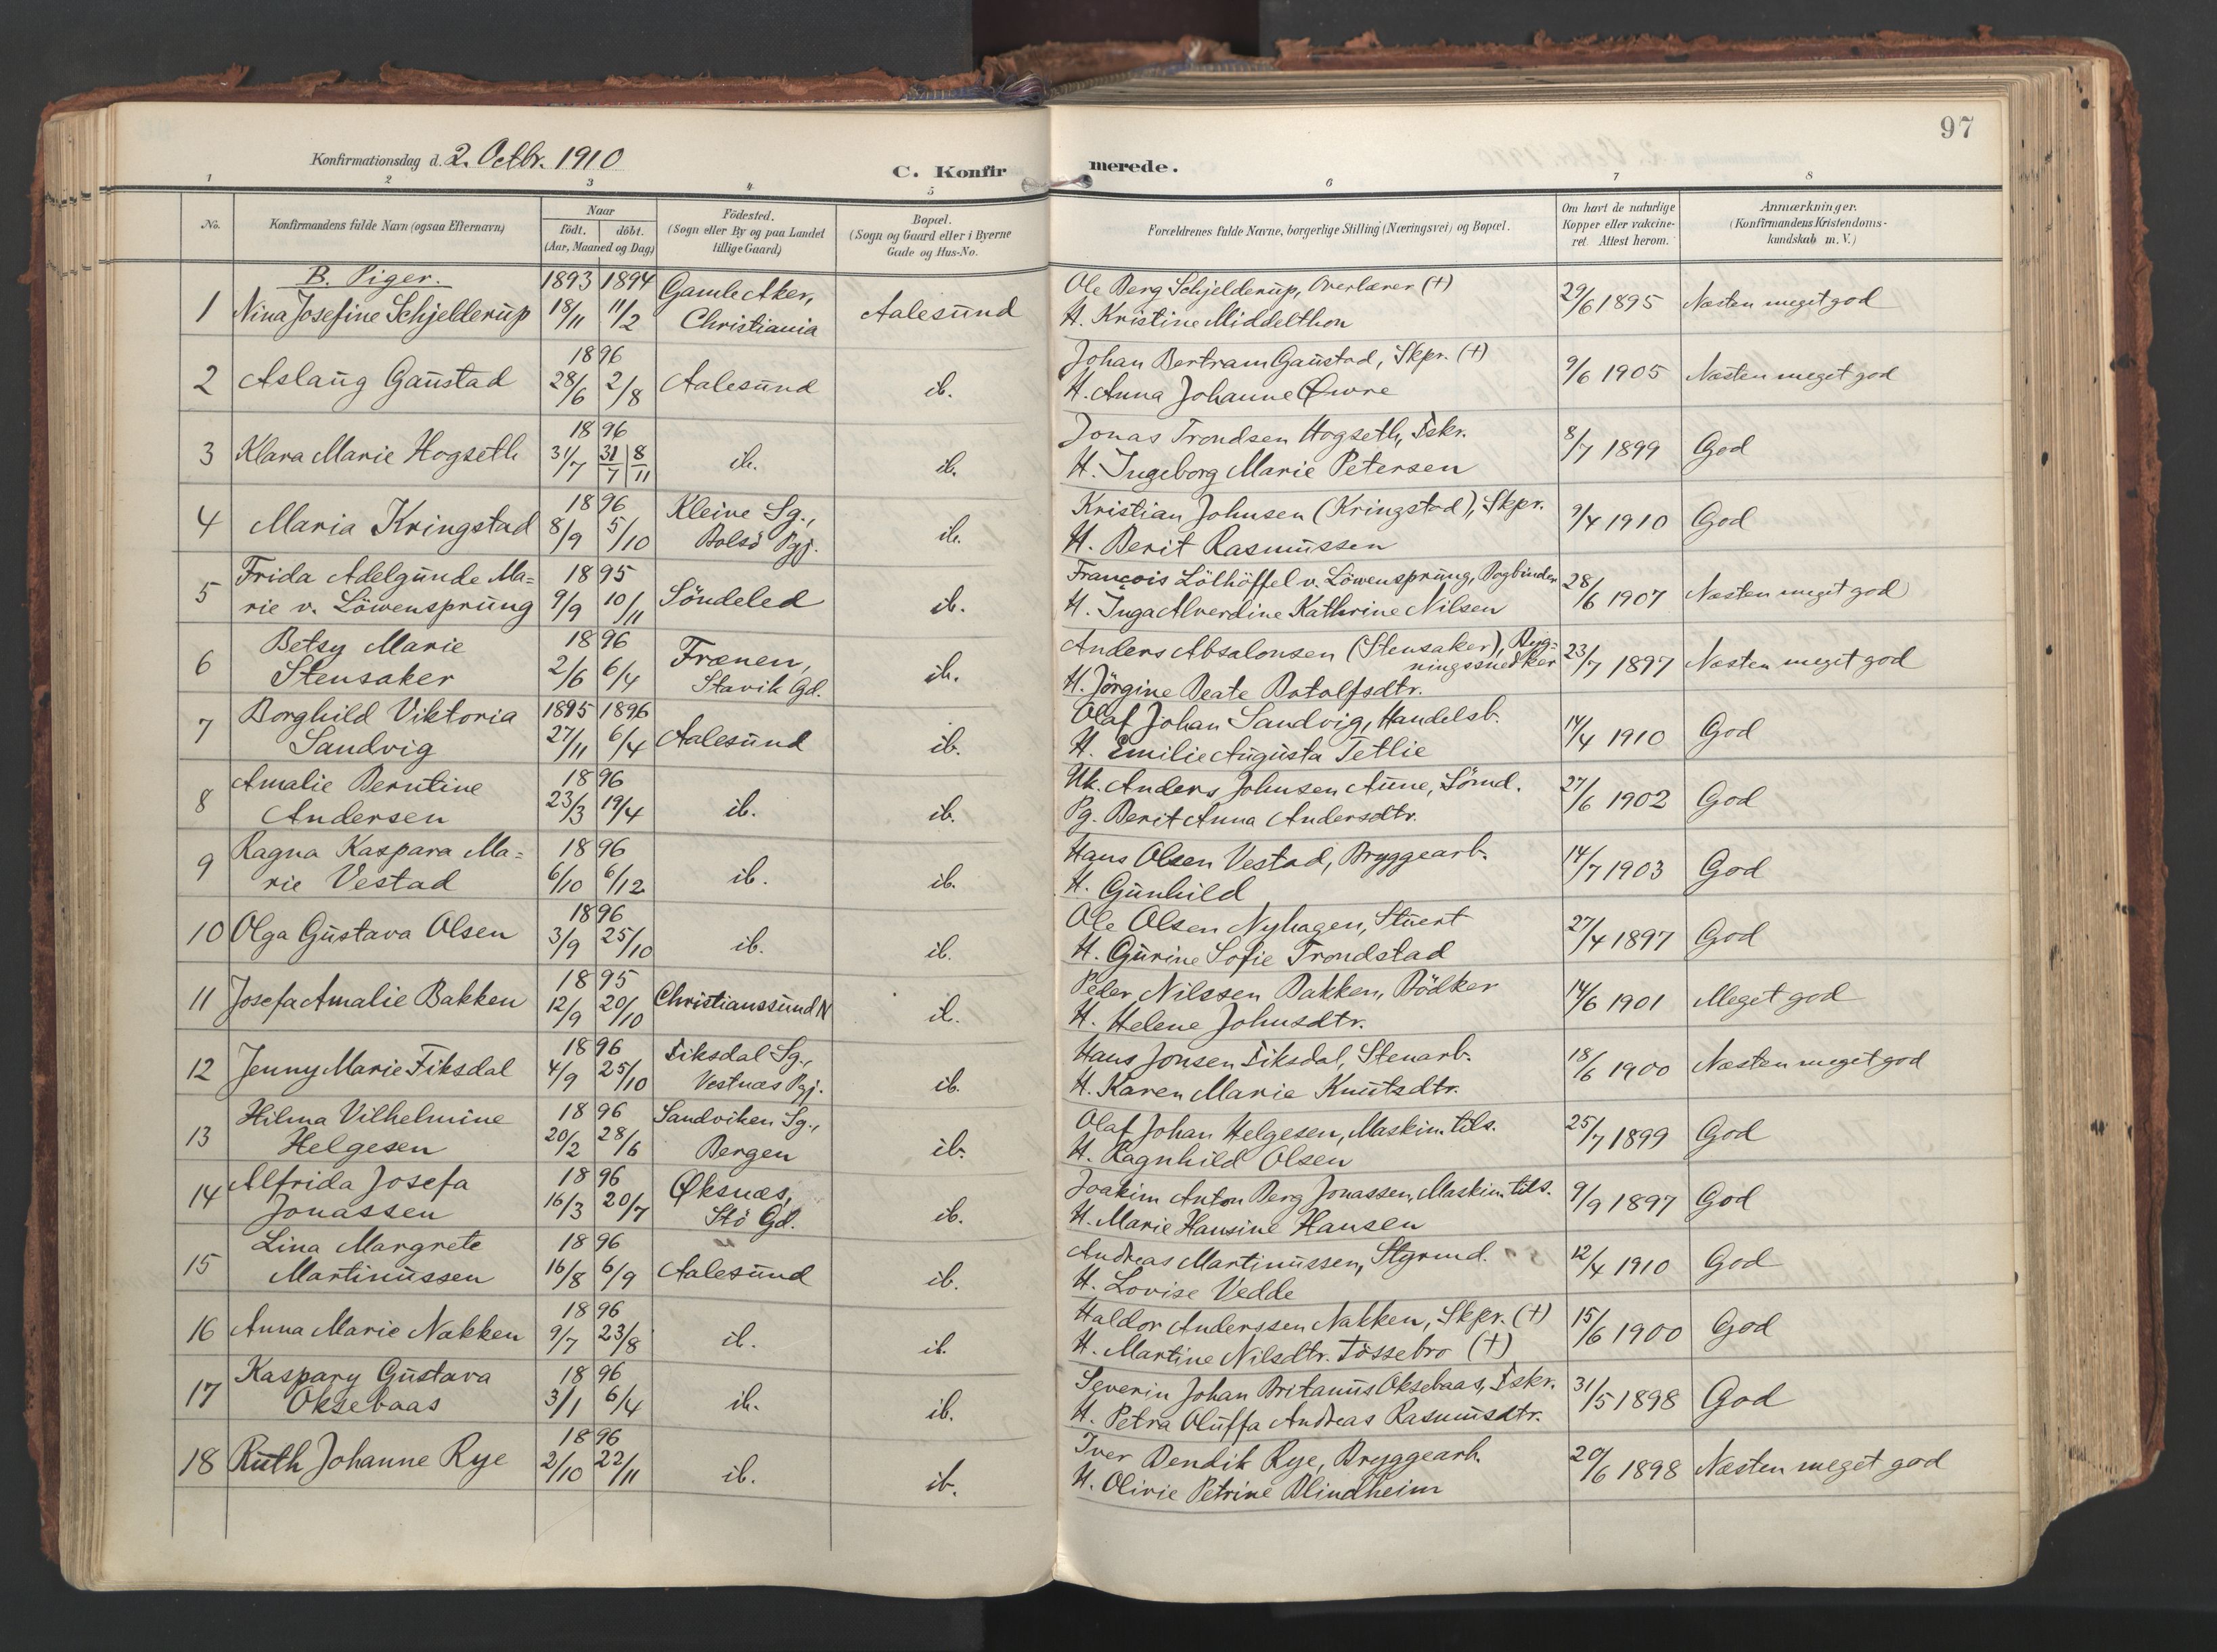 97
Konfirmationsdag d. 2. Octbr. 1910
C. Konfirmerede.
1 2 3 4 5 6 7 8
No.
Konfirmandens fulde Navn (ogsaa Efternavn)
Naar
født. døbt.
(Aar, Maaned og Dag)
Födested.
(Sogn eller By og paa Landet
tillige Gaard)
Bopæl.
(Sogn og Gaard eller i Byerne
Gade og Hus-No.
Forældrenes fulde Navne, borgerlige Stilling (Næringsvei) og Bopæl.
Om havt de naturlige
Kopper eller vakcine-
ret Attest herom.
Anmærkninger.
(Konfirmandens Kristendoms-
kundskab m. V.)
B. Piger. 1893 1894 Gamle Aker, Ole Berg Schjelderup, Overlærer (+)
1 Nina Josefine Schjelderup 18/11 11/2 Christiania Aalesund H. Kristine Middelthon 29/6 1895 Næsten meget god
1896 Johan Bertram Gaustad, Skpr. (+)
2 Aslaug Gaustad 28/6 2/8 Aalesund ib. H. Anna Johanne Øwre 9/6 1905 Næsten meget god
1896 Jonas Trondsen Hogseth, Fskr.
3 Klara Marie Hogseth 31/7 31/7 8/11 ib. ib. H. Ingeborg Marie Petersen 8/7 1899 God
1896 Kleive Sg., Kristian Johnsen (Kringstad), Skpr.
4 Maria Kringstad 8/9 5/10 Bolsö Pgj. ib. H. Berit Rasmussen 9/4 1910 God
Frida Adelgunde Ma= 1895 François Lölhöffel v. Löwensprung, Bogbinder
5 rie v. Löwensprung 9/9 10/11 Söndeled ib. H. Inga Alverdine Kathrine Nilsen 28/6 1907 Næsten meget god
Betsy Marie 1896 Frænen, Anders Absalonsen (Stensaker), Byg=
ningssnedker
6 Stensaker 2/6 6/4 Stavik Gd. ib. H. Jörgine Beate Botolfsdtr. 23/7 1897 Næsten meget god
Borghild Viktoria 1895 1896 Olaf Johan Sandvig, Handelsb.
7 Sandvig 27/11 6/4 Aalesund ib. H. Emilie Augusta Tetlie 14/4 1910 God
Amalie Berntine 1896 Uk. Anders Johnsen Aune, Sömd.
8 Andersen 23/3 19/4 ib. ib. Pg. Berit Anna Andersdtr. 27/6 1902 God
Ragna Kaspara Ma= 1896 Hans Olsen Vestad, Bryggearb.
9 rie Vestad 6/10 6/12 ib. ib. H. Gunhild 14/7 1903 God
1896 Ole Olsen Nyhagen, Stuert
10 Olga Gustava Olsen 3/9 25/10 ib. ib. H. Gurine Sofie Trondstad 27/4 1897 God
1895 Peder Nilssen Bakken, Bödker
11 Josefa Amalie Bakken 12/9 20/10 Christianssund N ib. H. Helene Johnsdtr. 14/6 1901 Meget god
1896 Fiksdal Sg., Hans Jonsen Fiksdal, Stenarb.
12 Jenny Marie Fiksdal 4/9 25/10 Vestnæs Pgj. ib. H. Karen Marie Knutsdtr. 18/6 1900 Næsten meget god
Hilma Vilhelmine 1896 Sandviken Sg., Olaf Johan Helgesen, Maskin. tils.
13 Helgesen 20/2 28/6 Bergen ib. H. Ragnhild Olsen 25/7 1899 God
Alfrida Josefa 1896 Øksnæs, Joakim Anton Berg Jonassen, Maskin. tils.
14 Jonassen 16/3 20/7 Stö Gd. ib. H. Marie Hansine Hansen 9/9 1897 God
Lina Margrete 1896 Andreas Martinussen, Styrmd.
15 Martinussen 16/8 6/9 Aalesund ib. H. Lovise Vedde 12/4 1910 God
1896 Haldor Anderssen Nakken, Skpr. (+)
16 Anna Marie Nakken 9/7 23/8 ib. ib. H. Martine Nilsdtr. Tössebro (+) 15/6 1900 God
Kaspary Gustava 1896 Severin Johan Britanus Oksebaas, Fskr.
17 Oksebaas 3/1 6/4 ib. ib. H. Petra Oluffa Andreas Rasmusdtr. 31/5 1898 God
1896 Iver Bendik Rye, Bryggearb.
18 Ruth Johanne Rye 2/10 22/11 ib. ib. H. Olivie Petrine Blindheim 20/6 1898 Næsten meget god